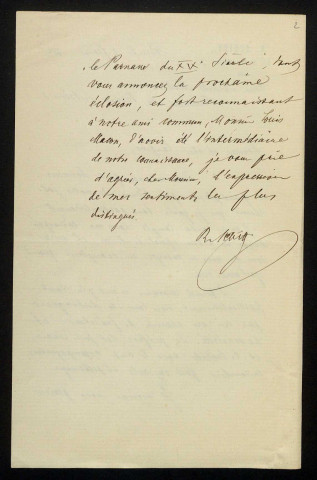 2
le Parnasse du XIXe Siècle, dont
vous annoncez la prochaine
éclosion, et fort reconnaissant
à notre ami commun, Monsieur Louis
d'avoir été l'intermédiaire
de notre connaissance, je vous prie
d'agréer, cher Monsieur, l'expression
de mes sentiments les plus
distingués.